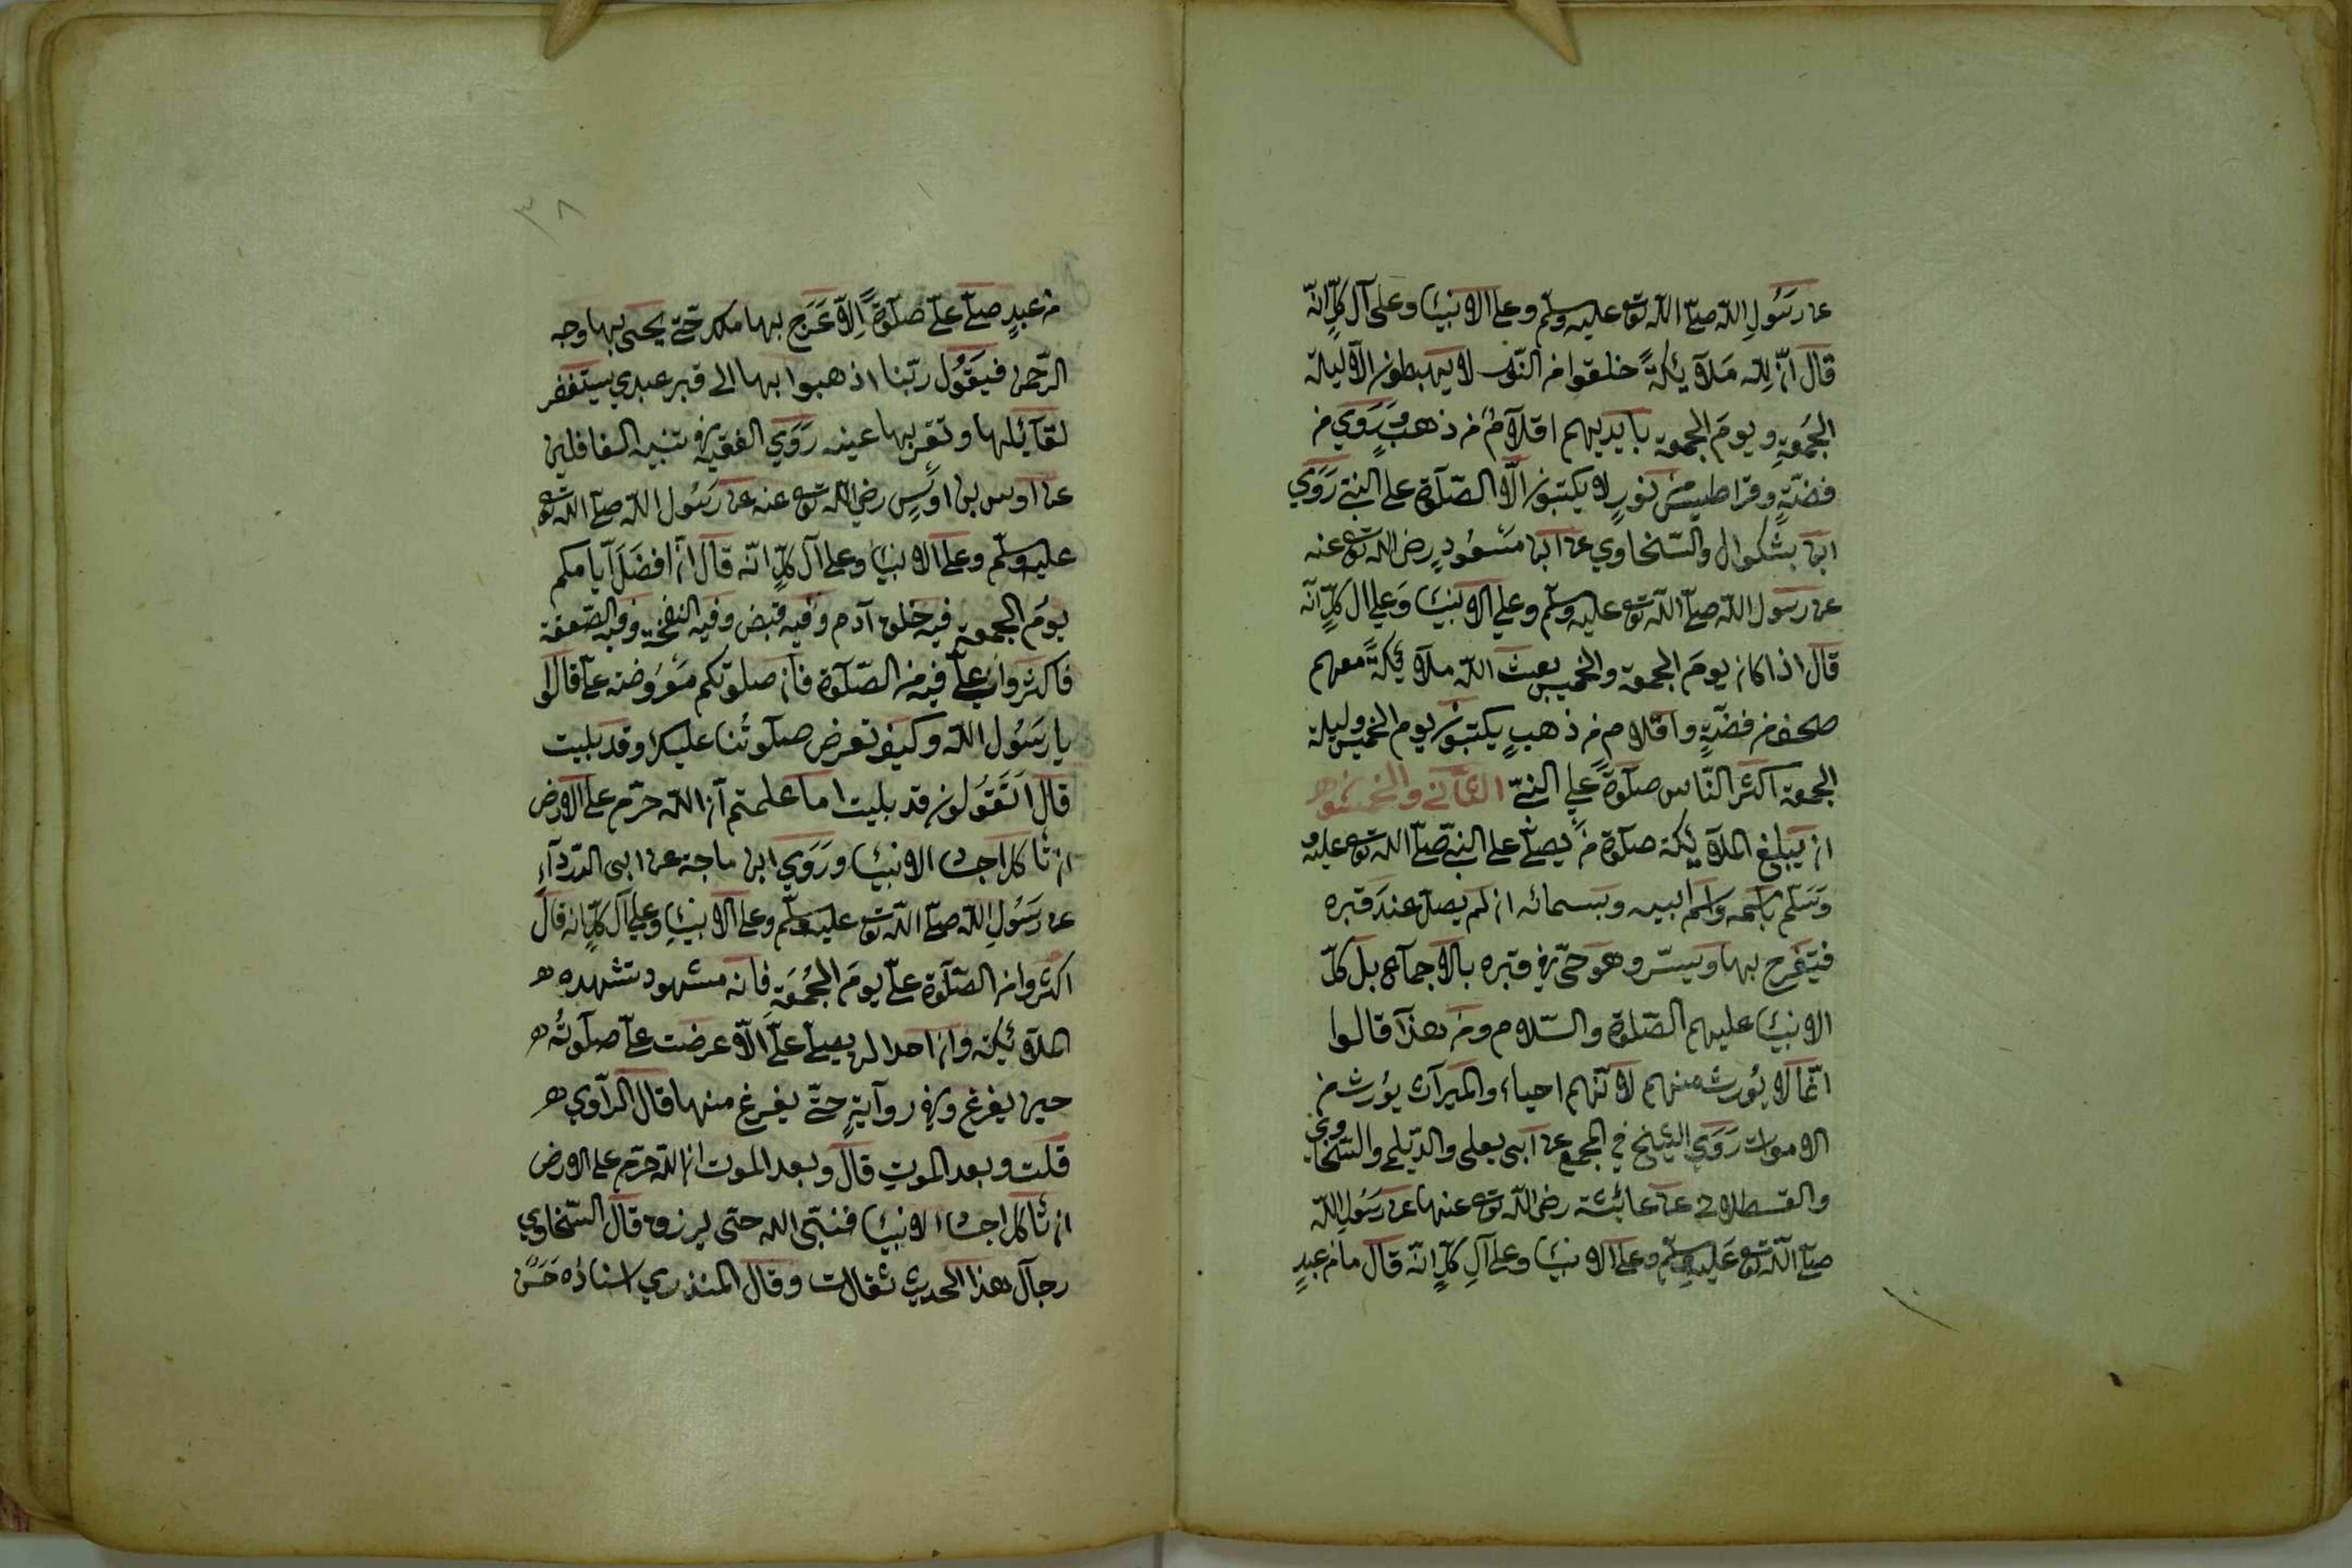 عن رسول الله صلى الله تع عليه وسلم وعلى الانبياء وعلى آل كل انه
قال ان لله ملائكة خلقوا من النور لا يهبطون الا ليلة
الجمعة ويوم الجمعة بايديهم اقلام من ذهب ودوي من
فضة وقراطيس من نور لا يكتبون الا الصلاة على النبي روى
ابن بشكوال والسخاوي عن ابن مسعود رضى الله تع عنه
عن رسول الله صلى الله تع عليه وسلم وعلى الانبياء وعلى ال كل انه
قال اذا كان يوم الجمعة والخميس بعث الله ملائكة معهم
صحف من فضة واقلام من ذهب يكتبون يوم الخميس وليلة
الجمعة اكثر الناس صلوة على النبي الثاني والخمسون
ان يبلغ الملائكة صلوة من يصلي على النبي صلى الله تع عليه
وسلم باسمه واسم ابيه وبسمائه ان لم يصل عند قبره
فيفرح بها ويسر وهو حي في قبره بالاجماع بل كل
الانبياء عليهم الصلوة والسلام ومن هذا قالوا
انما لا يورث منهم لانهم احياء والميراث يورث من
الاموات روى الشيخ في المجمع عن ابى يعلى والديلمي والسخاوي
والقسطلاني عن عائشة رضى الله تع عنها عن رسول الله
صلى الله تع عليه وسلم وعلى الانبياء وعلى آل كل انه قال ما من عبد
٣٨
من عبد صلى علي صلوة الا عرج بها ملك حتى يحيى بها وجه
الرحمن فيقول ربنا اذهبوا بها الى قبر عبدي يستغفر
لقائلها وتقر بها عينه روى الفقيه في تنبيه الغافلين
عن اوس بن اوس رضى الله تع عنه عن رسول الله صلى الله تع
عليه وسلم وعلى الانبياء وعلى آل كل انه قال ان افضل ايامكم
يوم الجمعة فيه خلق آدم وفيه قبض وفيه النفخة وفيه الصعقة
فاكثروا علي فيه من الصلاة فان صلوتكم معروضة علي قالوا
يا رسول الله وكيف تعرض صلوتنا عليك وقد بليت
قال اتقولون قد بليت اما علمتم ان الله حرم على الارض
ان تاكل اجساد الانبياء وروى ابن ماجة عن ابى الدرداء
عن رسول الله صلى الله تع عليه وسلم وعلى الانبياء وعلى آل كل انه قال
اكثروا من الصلاة علي يوم الجمعة فانه مشهود تشهده
الملائكة وان احدا لن يصلي علي الا عرضت علي صلوته
حين يفرغ وفي رواية حتى يفرغ منها قال الراوي
قلت وبعد الموت قال وبعد الموت ان الله حرم على الارض
ان تاكل اجساد الانبياء فنبي الله حتى يرزق قال السخاوي
رجال هذا الحديث ثقات وقال المنذري اسناده حسن